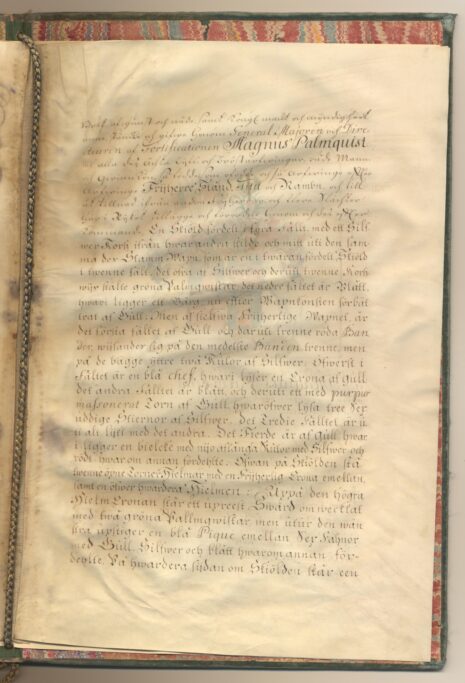 General Majoren och Dire
cteuren af Fortificationen Magnus Palmquist
Fryherre Stånd och Nambn, och till
Commando. En Skiöld fördelt i fyra Fält med ett Silf
wer Kors ifrån hwar andra skilde och mitt uti den sam
ma der Stamm Wapn, som är en i twären fördelt Skiöld
i twenne fält, det öfra af Silfwer och deruti twenne Kors
wijs stälte gröna Palmqwistar, det nedre fältet är Blått,
hwari ligger ett Bärg, nu efter Wapnkonsten förbät
trat af Gull. Men af sielfwa Fryherlige Wapnet, är
det första fältet af Gull och daruti trenne röda Ban
der, wijsandes sig på den medelste Banden trenne, men
på de bägge yttre twå Kulor af Silfwer. Öfwerst i
Fältet är en blå chef, hwari lyser en Crona af gull
det andra Fälltet är blått, och deruti ett med purpur
massonerat Torn af Gull, hwaröfwer lysa tree Sex
uddige Stiernor af Silfwer, det Tredie Fälltet är u
ti alt lijkt med det andra. Det Fierde är af Gull, hwar
i ligger en bielcke med nijo aflånga Rutor med Silfwer och
rödt hwar om annan fördehlte. Ofwan på Skiölden stå
twenne öpne Torner Hielmar med en Fryherlig Crona emellan,
samt en öfwer hwardera Hielmen: Uppå den högra
Hielm Cronan står ett upreест Swärd omwecklat
med twå gröna Pallmqwistar men utur den wän
stra upstiger en blå Pique emellan Sex Fahnor
med Gull, Silfwer och blått hwarom annan för-
dehlte. På hwardera sydan om Skiölden står een